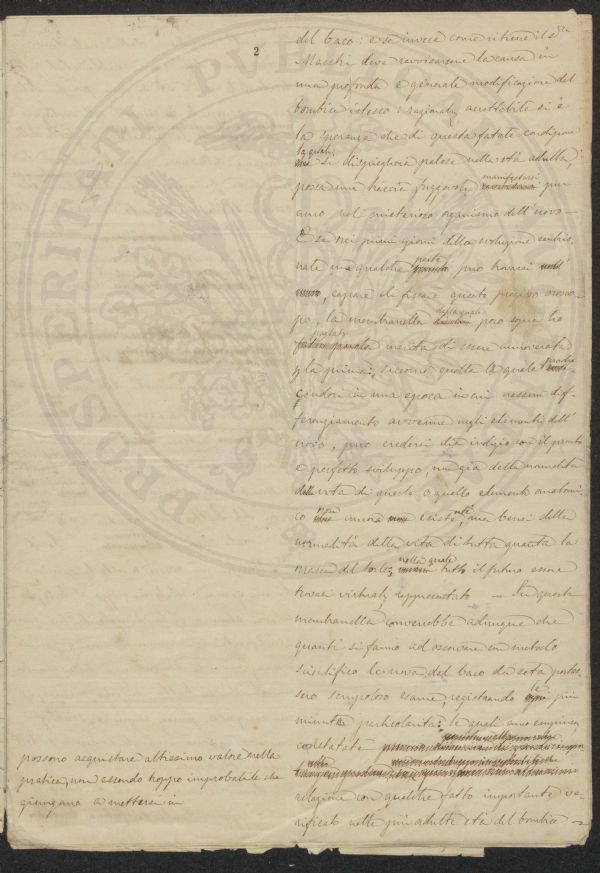 2
del baco: e se invece come ritiene il Sr
Maestri deve ravvisarsene la causa in
una profonda e generale modificazione del
bombice istesso: razionale accettabile si è
la speranza che di questa fatale condizione
la quale
si dispiegherà palese nella età adulta,
possa una traccia fuggevole manifestarsi pur
anco nel misterioso organismo dell'uovo —
E se nei primi giorni della evoluzione embrio-
nale in qualche parte può trovarsi
capace di fissare questo orosco-
po, la membranella della quale poco sopra ho
parlato merita di essere annoverata
la prima; siccome quella la quale
in una epoca in cui nessun dif-
ferenziamento avvenne negli elementi dell'
uovo, può credersi dia indizio con il pronto
e perfetto sviluppo, non già della normalità
della vita di questo o quello elemento anatomi-
co non ancora esistente, ma bensì della
normalità della vita di tutta quanta la
massa del torlo, nella quale tutto il futuro essere
trovasi virtualmente rappresentato — Su questa
membranella converrebbe adunque che
quanti si fanno ad osservare con metodo
scientifico le uova del baco da seta portas-
sero scrupoloso esame, registrando le più
minute particolarità: le quali
constatate
possono acquistare altissimo valore nella
pratica, non essendo troppo improbabile che
giungano a mettersi in
relazione con qualche fatto importante ve-
rificato nelle più adulte età del bombice